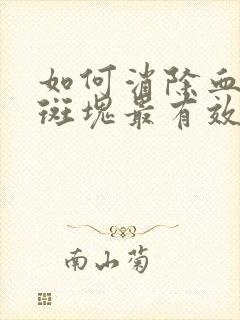 如何消除血
斑块最有效
南山菊